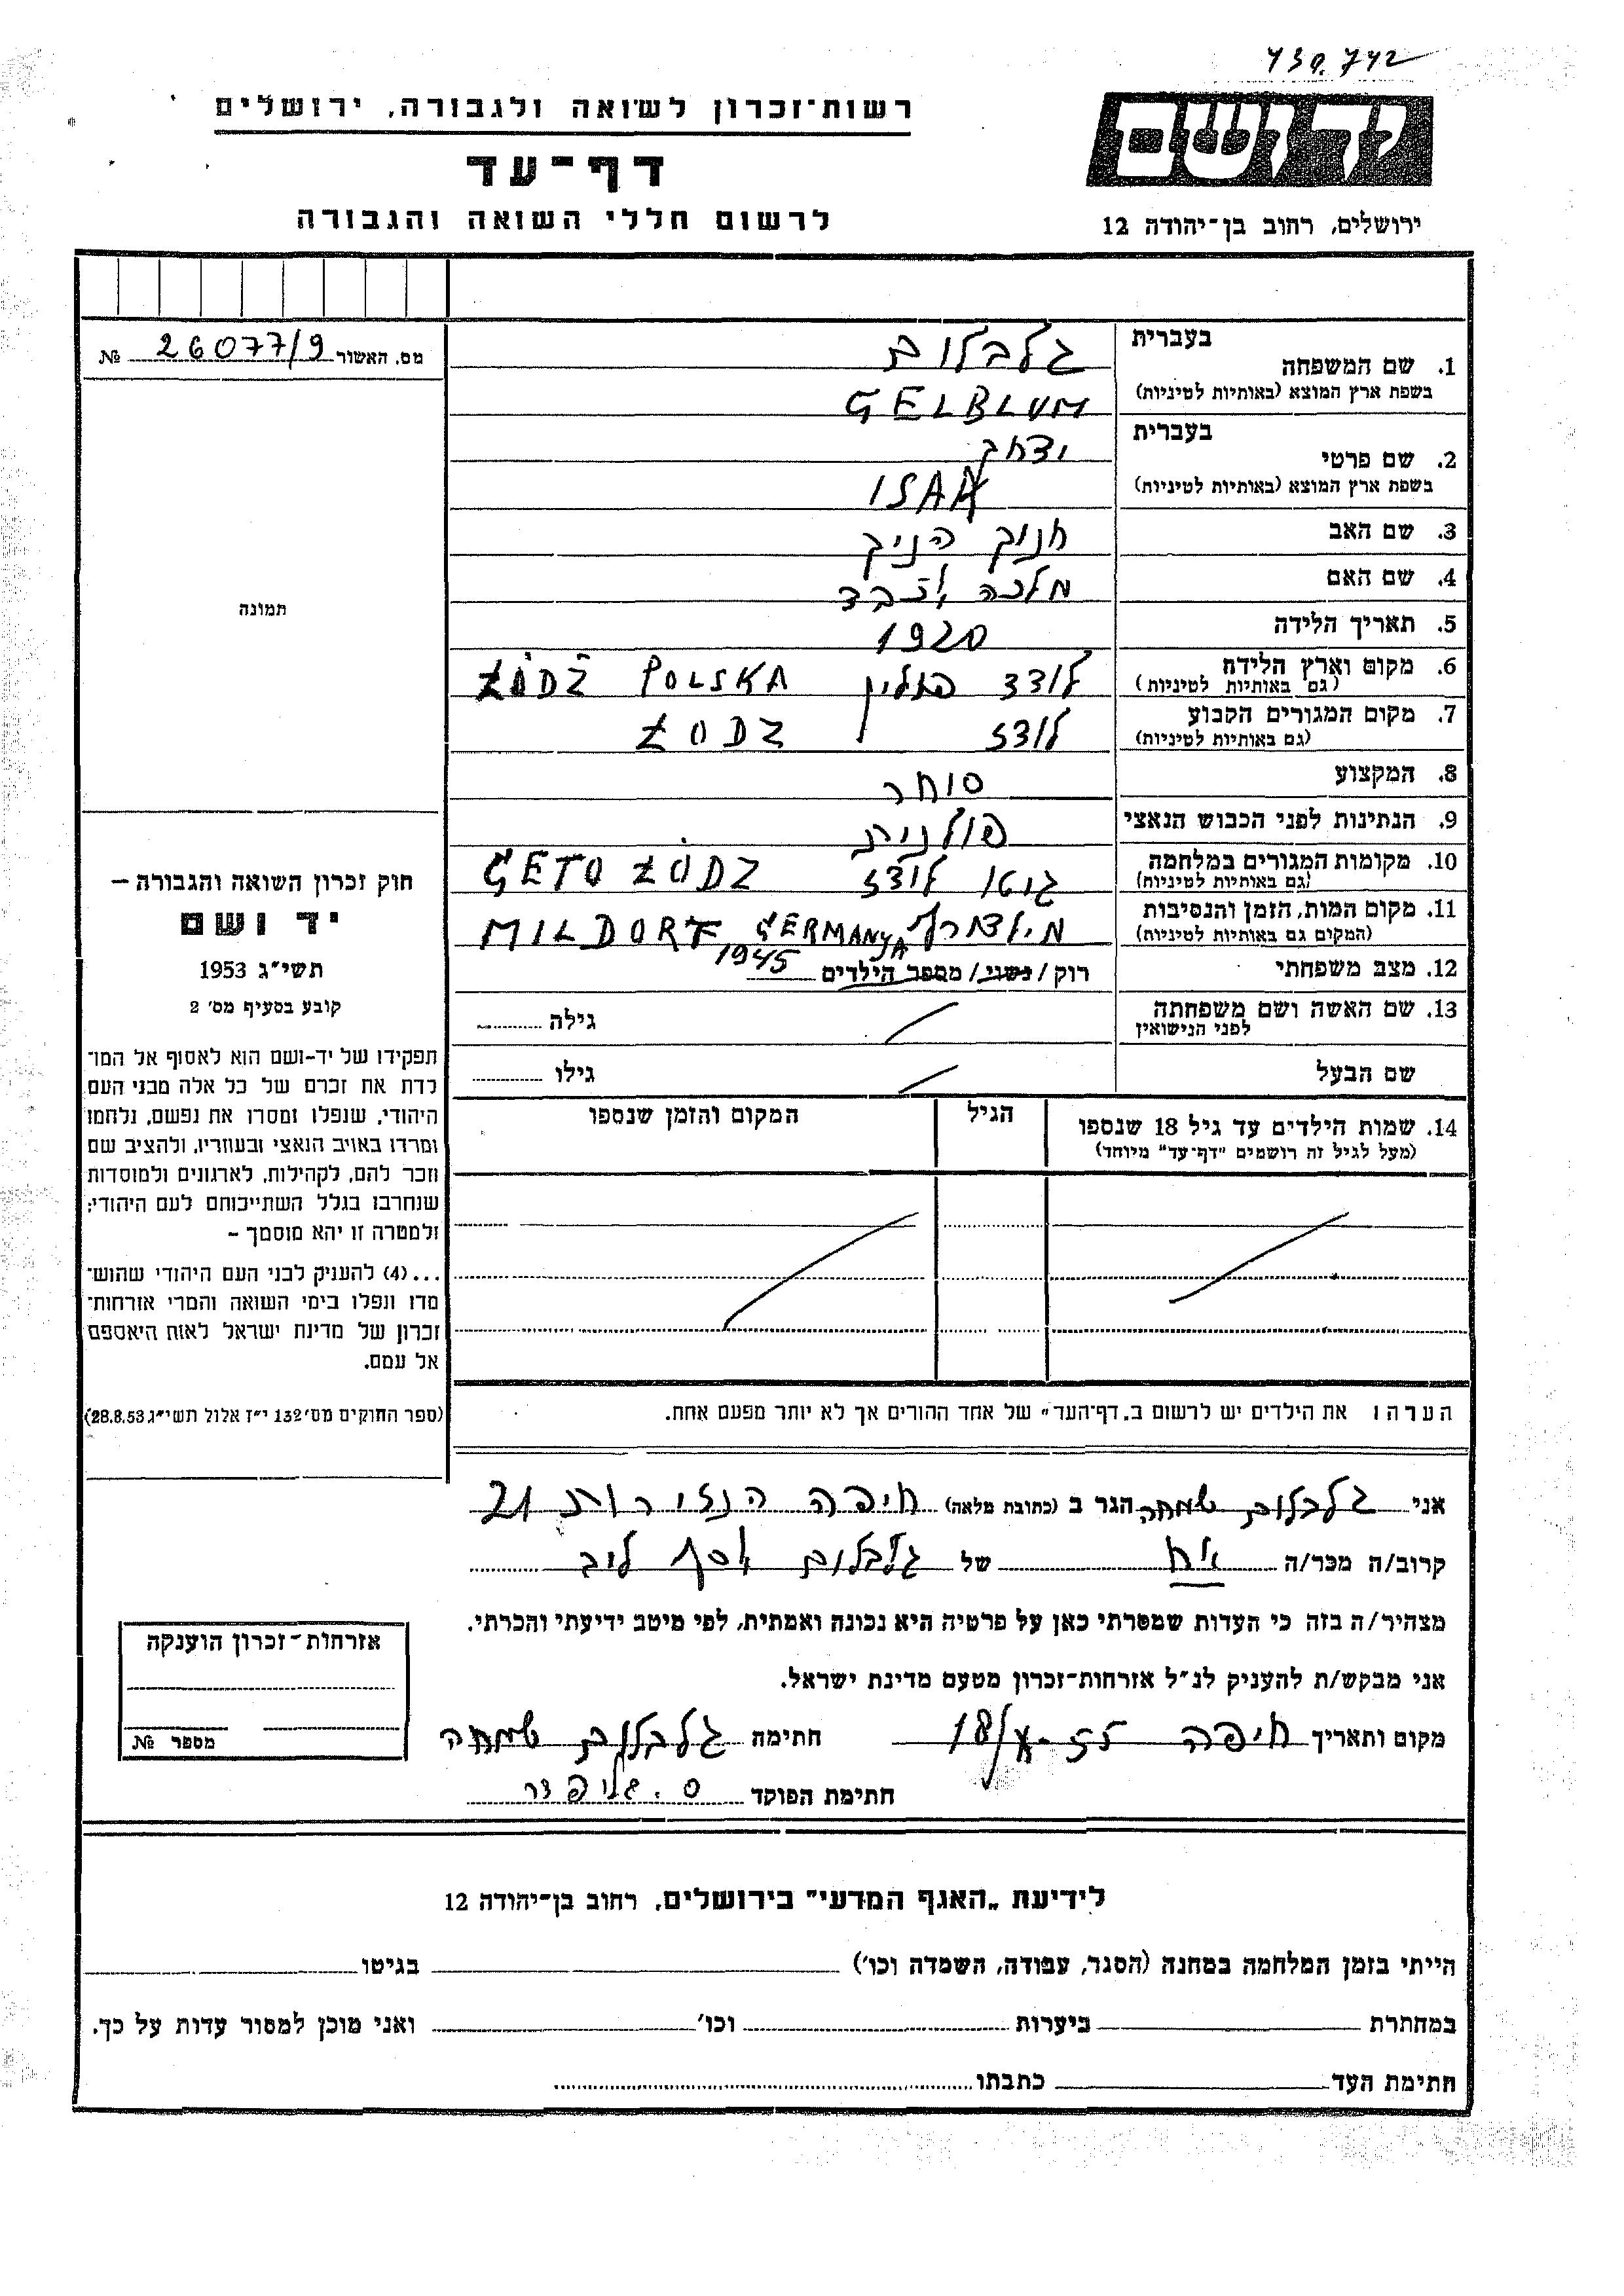 430.742
רשות־זכרון לשואה ולגבורה, ירושלים
יד ושם
דף־עד
ירושלים, רחוב בן־יהודה 12
לרשום חללי השואה והגבורה
מס. האשור 26077/9 №
תמונה
חוק זכרון השואה והגבורה —
יד ושם
תשי״ג 1953
קובע בסעיף מס׳ 2
תפקידו של יד-ושם הוא לאסוף אל המו־
לדת את זכרם של כל אלה מבני העם
היהודי, שנפלו ומסרו את נפשם, נלחמו
ומרדו באויב הנאצי ובעוזריו, ולהציב שם
וזכר להם, לקהילות, לארגונים ולמוסדות
שנחרבו בגלל השתייכותם לעם היהודי;
ולמטרה זו יהא מוסמך –
...(4) להעניק לבני העם היהודי שהוש־
מדו ונפלו בימי השואה והמרי אזרחות־
זכרון של מדינת ישראל לאות היאספם
אל עמם.
(ספר החוקים מס׳ 132 י״ז אלול תשי״ג 28.8.53)
בעברית גלבלום
1. שם המשפחה
בשפת ארץ המוצא (באותיות לטיניות) GELBLUM
בעברית יצחק
2. שם פרטי
בשפת ארץ המוצא (באותיות לטיניות) ISAK
3. שם האב חנוך הניך
4. שם האם מלכה
5. תאריך הלידה 1920
6. מקום וארץ הלידה לודז פולין ŁÓDŹ POLSKA
(גם באותיות לטיניות)
7. מקום המגורים הקבוע לודז ŁODZ
(גם באותיות לטיניות)
8. המקצוע סוחר
9. הנתינות לפני הכבוש הנאצי פולנית
10. מקומות המגורים במלחמה גטו לודז GETO ŁÓDZ
(גם באותיות לטיניות)
11. מקום המות, הזמן והנסיבות מילדורף MILDORF GERMANYA
(המקום גם באותיות לטיניות) 1945
12. מצב משפחתי רוק / נשוי / מספר הילדים
13. שם האשה ושם משפחתה גילה
לפני הנישואין
שם הבעל גילו
14. שמות הילדים עד גיל 18 שנספו הגיל המקום והזמן שנספו
(מעל לגיל זה רושמים "דף־עד" מיוחד)
הערה: את הילדים יש לרשום ב„דף־העד" של אחד ההורים אך לא יותר מפעם אחת.
אני גלבלום שמחה הגר ב (כתובת מלאה) חיפה הנזירות 21
קרוב/ה מכר/ה אח של גלבלום ליב
מצהיר/ה בזה כי העדות שמסרתי כאן על פרטיה היא נכונה ואמתית, לפי מיטב ידיעתי והכרתי.
אני מבקש/ת להעניק לנ״ל אזרחות־זכרון מטעם מדינת ישראל.
מקום ותאריך חיפה 18/X-55 חתימה גלבלום שמחה
חתימת הפוקד
אזרחות־זכרון הוענקה
מספר №
לידיעת „האגף המדעי" בירושלים, רחוב בן־יהודה 12
הייתי בזמן המלחמה במחנה (הסגר, עבודה, השמדה וכו׳) בגיטו
במחתרת ביערות וכו׳ ואני מוכן למסור עדות על כך.
חתימת העד כתבתו